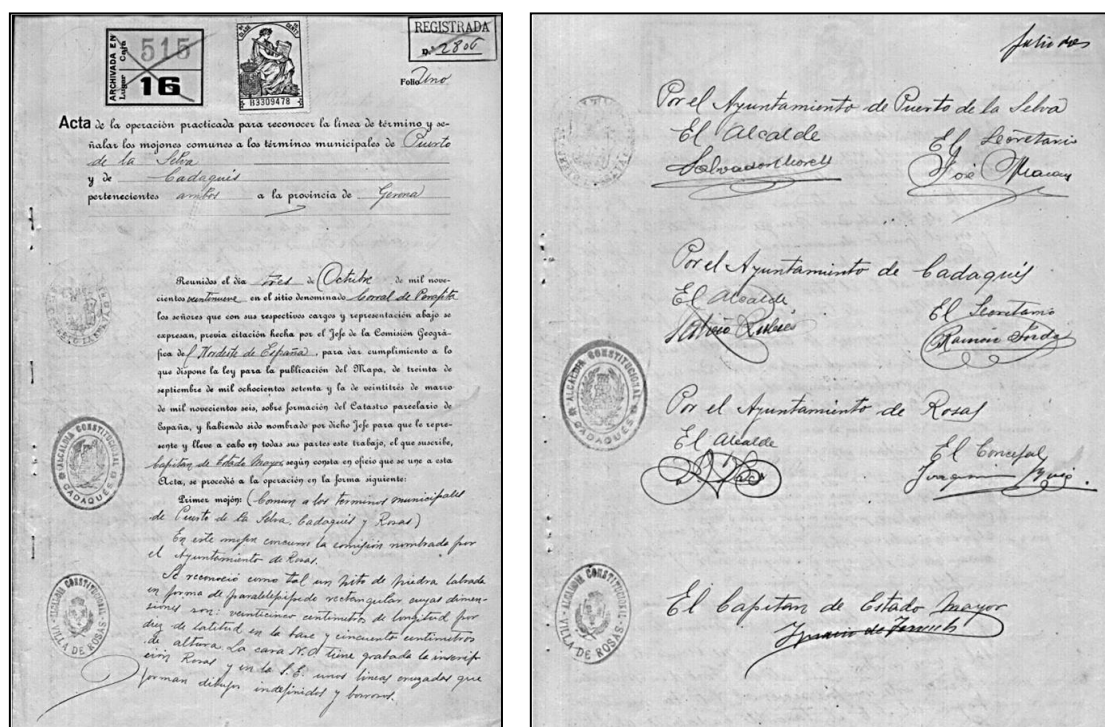 ARCHIVADA EN
Lugar Caja
515
16
B3309478
REGISTRADA
n.º 2806
Folio Uno
Acta de la operación practicada para reconocer la línea de término y se-
ñalar los mojones comunes a los términos municipales de Puerto
de la Selva
y de Cadaqués
pertenecientes ambos a la provincia de Gerona
Reunidos el día tres de Octubre de mil nove-
cientos veintinueve en el sitio denominado Corral de
los señores que con sus respectivos cargos y representación abajo se
expresan, previa citación hecha por el Jefe de la Comisión Geográ-
fica del Nordeste de España, para dar cumplimiento a lo
que dispone la ley para la publicación del Mapa, de treinta de
septiembre de mil ochocientos setenta y la de veintitrés de marzo
de mil novecientos seis, sobre formación del Catastro parcelario de
España, y habiendo sido nombrado por dicho Jefe para que le repre-
sente y lleve a cabo en todas sus partes este trabajo, el que suscribe,
Capitán de Estado Mayor según consta en oficio que se une a esta
Acta, se procedió a la operación en la forma siguiente:
Primer mojón: (Común a los términos municipales
de Puerto de la Selva, Cadaqués y Rosas)
En este mojón concurre la comisión nombrada por
el Ayuntamiento de Rosas.
Se reconoció como tal un hito de piedra labrada
en forma de paralelepípedo rectangular, cuyas dimen-
siones son: veinticinco centímetros de longitud por
diez de latitud en la base y cincuenta centímetros
de altura. La cara N.O tiene grabada la inscrip-
ción Rosas y en la S.E. unas líneas cruzadas que
forman dibujos indefinidos y borrosos.
ALCALDIA CONSTITUCIONAL
CADAQUES
ALCALDIA CONSTITUCIONAL
VILLA DE ROSAS
folio dos
Por el Ayuntamiento de Puerto de la Selva
El Alcalde El Secretario
Salvador José
Por el Ayuntamiento de Cadaqués
El Alcalde El Secretario
Ramón
Por el Ayuntamiento de Rosas
El Alcalde El Concejal
Joaquin Puig
ALCALDIA CONSTITUCIONAL
CADAQUES
El Capitán de Estado Mayor
Ignacio de
ALCALDIA CONSTITUCIONAL
VILLA DE ROSAS